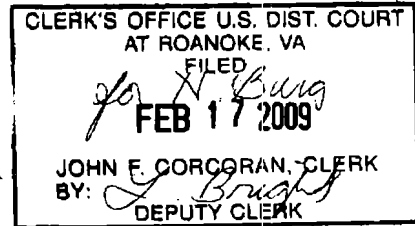 CLERK'S OFFICE U.S. DIST. COURT
AT ROANOKE, VA
FILED
for H. Burg
FEB 17 2009
JOHN F. CORCORAN, CLERK
BY: L. Bright
DEPUTY CLERK